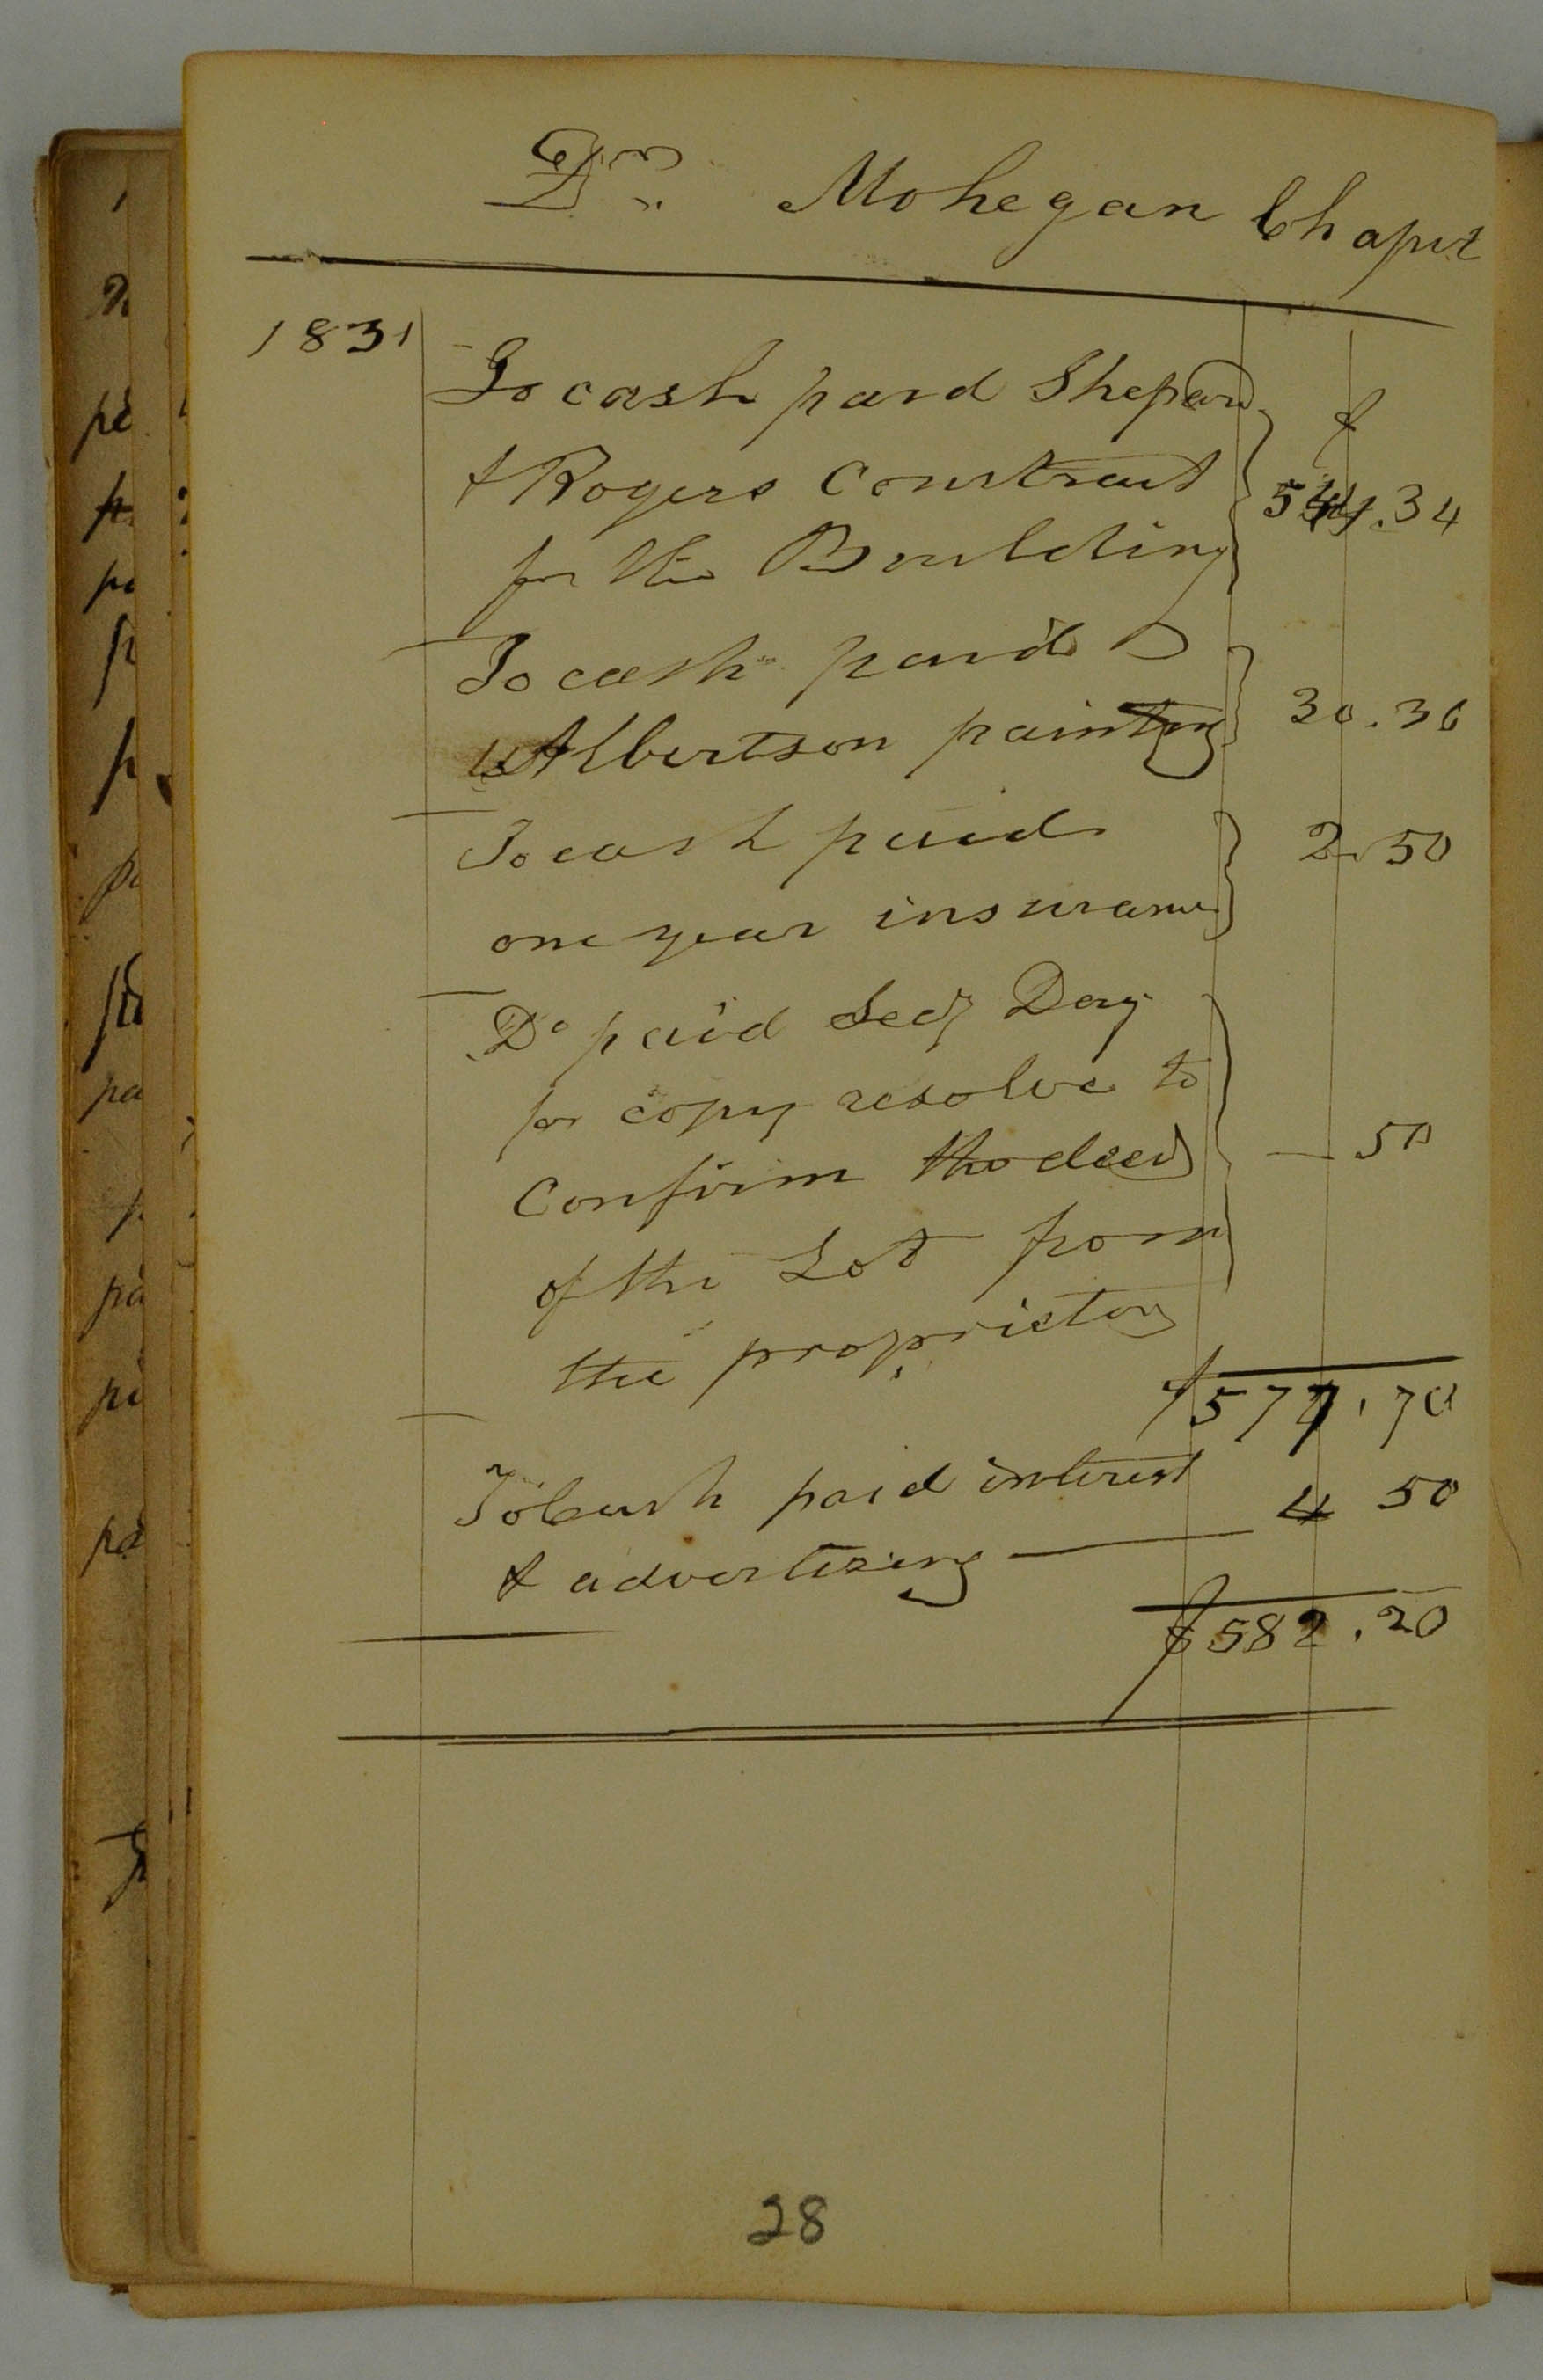 Dr. Mohegan Chapel
1831
To cash paid Shepard
& Rogers Contract
for the Building
$
544.34
To cash paid
Albertson painting
30.36
To cash paid
one year insurance
2.50
Do paid Secy Day
for copy resolve to
Confirm the deed
of the Lot from
the proprietors
— 50
$577.70
To Cash paid interest
& advertizing —
4 50
$582.20
28